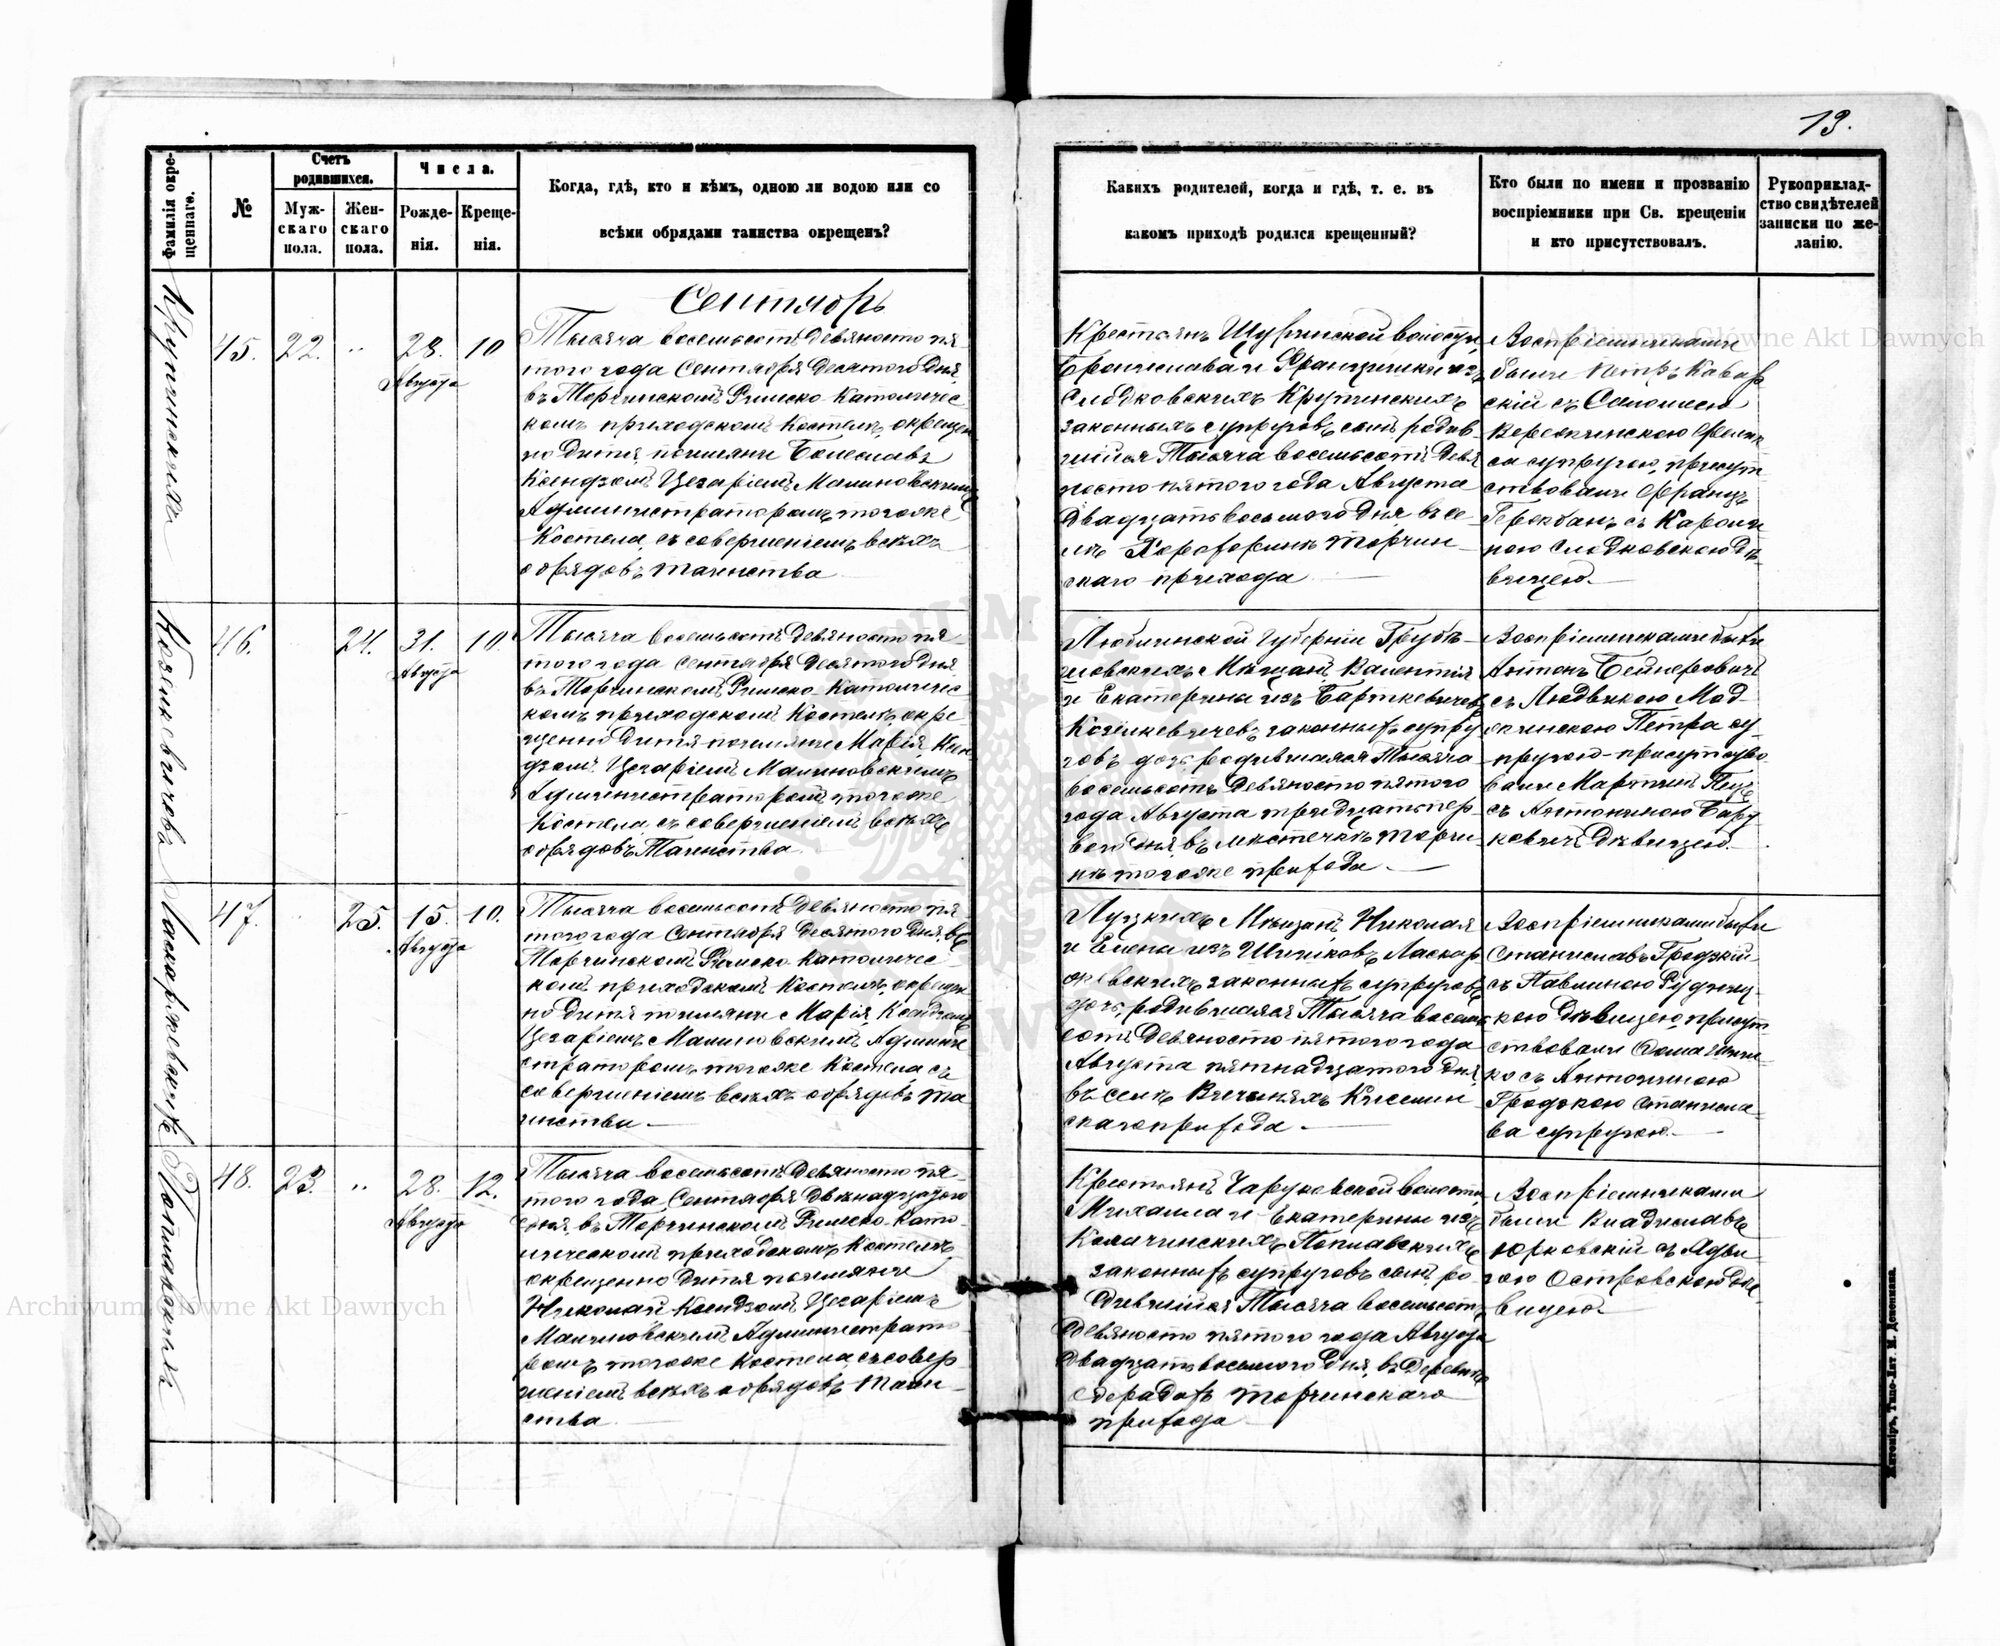 13.
Фамилія окре-
щеннаго.
№
Счетъ
родившихся.
Муж-
скаго
пола.
Жен-
скаго
пола.
Числа.
Рожде-
нія.
Креще-
нія.
Когда, гдѣ, кто и кѣмъ, одною ли водою или со
всѣми обрядами таинства окрещенъ?
Какихъ родителей, когда и гдѣ, т. е. въ
какомъ приходѣ родился крещенный?
Кто были по имени и прозванію
воспріемники при Св. крещеніи
и кто присутствовалъ.
Рукоприклад-
ство свидѣтелей
записки по же-
ланію.
Сентябрь
Крупинскихъ
45. 22. " 28. 10
Августа
Тысяча восемьсотъ девяносто пя-
того года Сентября десятого дня,
въ Торчинскомъ Римско Католичес
комъ приходскомъ Костелѣ, окрещен
но дитя, поимяни Болеславъ
Ксендзомъ Цезаріемъ Малиновскимъ
Администраторомъ тогоже
Костела, съ совершеніемъ всѣхъ
обрядовъ таинства
Крестьянъ Щуринской волости,
Бронислава и Францишки изъ
Слодковскихъ Крупинскихъ
законныхъ супруговъ сынъ, родив-
шійся Тысяча восемьсотъ девя
носто пятого года Августа
двадцать восьмого дня, въ се-
лѣ Торчин-
скаго прихода
Воспріемниками
были Петръ Кавар
скій съ Саломією
супругою, присут
ствовали Францъ
съ Кароли
ною Слодковскою дѣ-
вицею.
Козѣлкевичова
46. 24. 31. 10.
Августа
Тысяча восемьсотъ девяносто пя-
того года Сентября десятого дня
въ Торчинскомъ Римско-Католичес-
комъ приходскомъ Костелѣ, окре
щенно дитя поимяни Марія, Ксен-
дзомъ Цезаріемъ Малиновскимъ
Администраторомъ тогоже
Костела, съ совершеніемъ всѣхъ
обрядовъ Таинства.
Люблинской Губерніи Грубѣ-
шовскихъ Мѣщанъ Валентія
и Екатерины изъ Барткевичевъ
законныхъ супру
говъ дочь, родившаяся Тысяча
восемьсотъ девяносто пятого
года Августа тридцать пер-
вого дня, въ мѣстечкѣ Торчи-
нѣ тогоже прихода.
Воспріемниками были
Антонъ
съ Людвикою Мод
Петра су-
пругою присутство
вали Мартинъ
съ Антониною
дѣвицею.
47. 25. 15. 10.
Августа
Тысяча восемьсотъ девяносто пя-
того года Сентября десятого дня, въ
Торчинскомъ Римско Католичес-
комъ приходскомъ Костелѣ, окрещен
но дитя поимяни Марія, Ксендзомъ
Цезаріемъ Малиновскимъ Админи
страторомъ тогоже Костела, съ
совершеніемъ всѣхъ обрядовъ та
инства.
Луцкихъ Мѣщанъ Николая
и Елены изъ Ласкар
жевскихъ, законныхъ супруговъ
дочь, родившаяся Тысяча восемь
сотъ девяносто пятого года
Августа пятнадцатого дня,
въ селѣ
скаго прихода.
Воспріемниками были
Станиславъ Гродзкій
съ Павлиною Рудниц-
кою дѣвицею, присут
ствовали
ко съ Антониною
Гродзкою Станисла-
ва супругою.
48. 23. " 28. 12.
Августа
Тысяча восемьсотъ девяносто пя-
того года, Сентября двѣнадцатого
дня, въ Торчинскомъ Римско-Като-
лическомъ приходскомъ Костелѣ,
окрещенно дитя поимяни
Николай Ксендзомъ Цезаріемъ
Малиновскимъ Администрато-
ромъ тогоже Костела, съ совер-
шеніемъ всѣхъ обрядовъ таин-
ства
Крестьянъ Чаруковской волости,
Михаила и Екатерины изъ
Поплавскихъ
законныхъ супруговъ сынъ, ро-
дившійся Тысяча восемьсотъ
девяносто пятого года Августа
двадцать восьмого дня, въ деревнѣ
Торчинского
прихода
Воспріемниками
были Владиславъ
Юрковскій съ Ядви
гою Островскою дѣ-
вицею.
Житоміръ, Типо-Лит. И. Дененмана.
Archiwum Główne Akt Dawnych
Archiwum Główne Akt Dawnych